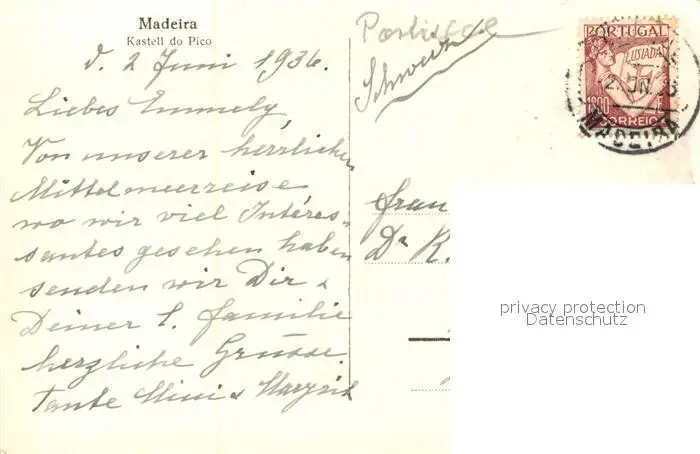 Madeira
Kastell do Pico
d. 2 Juni 1936.
Liebes Emmely,
Von unserer herrlichen
Mittelmeerreise
wo wir viel Interes-
santes gesehen haben
senden wir Dir &
Deiner l. Familie
herzliche Grüsse.
Tante Mini & Margrit
Schweiz
PORTUGAL
LUSIADAS
CORREIO
MADEIRA
Frau
Dr K.
privacy protection
Datenschutz